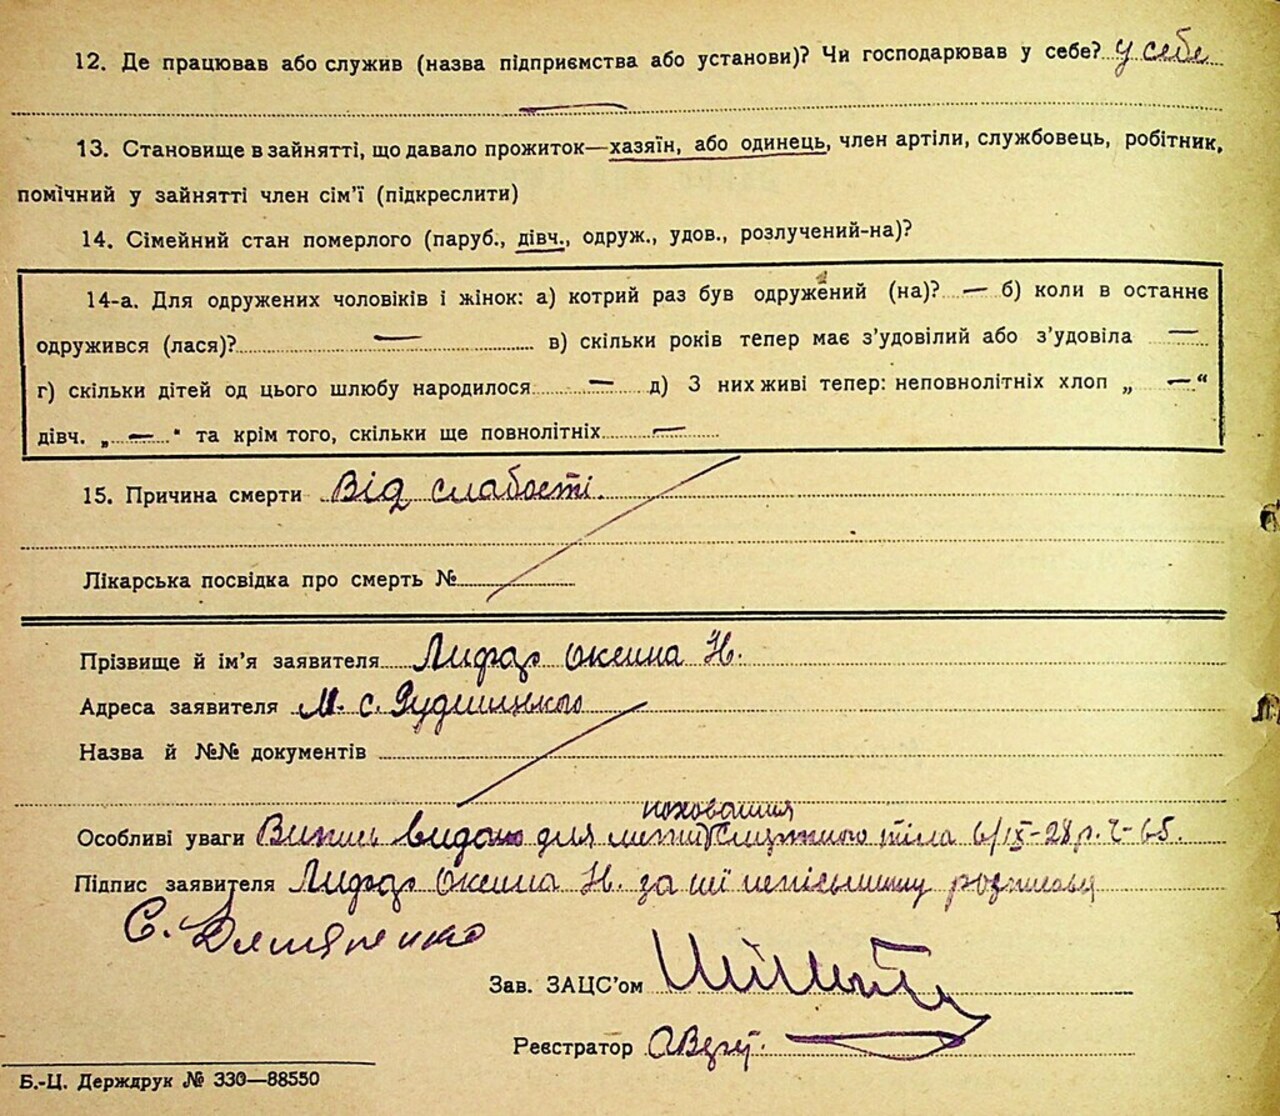 12. Де працював або служив (назва підприємства або установи)? Чи господарював у себе? у себе
13. Становище в зайнятті, що давало прожиток—хазяїн, або одинець, член артіли, службовець, робітник,
помічний у зайнятті член сім’ї (підкреслити)
14. Сімейний стан померлого (паруб., дівч., одруж., удов., розлучений-на)?
14-а. Для одружених чоловіків і жінок: а) котрий раз був одружений (на)? — б) коли в останнє
одружився (лася)? — в) скільки років тепер має з’удовілий або з’удовіла —
г) скільки дітей од цього шлюбу народилося — д) З них живі тепер: неповнолітніх хлоп „ — “
дівч. „ — “ та крім того, скільки ще повнолітніх —
15. Причина смерти Від слабості.
Лікарська посвідка про смерть №
Прізвище й ім’я заявителя Лифар Оксана Н.
Адреса заявителя М. с.
Назва й №№ документів
поховання
Особливі уваги Випись видано для тіла 6/IX-28р. Ч-65.
Підпис заявителя Лифар Оксана Н. за неї неписьменну
С. Демяненко
Зав. ЗАЦС’ом
Реєстратор
Б.-Ц. Держдрук № 330—88550